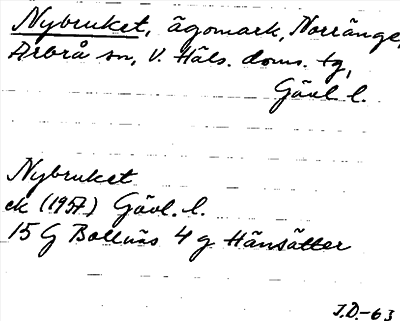 Nybruket, ägomark, Norränge,
Arbrå sn, V. Häls. doms. tg,
Gävl. l.
Nybruket
ek (1957) Gävl. l.
15 G Bollnäs 4 g Hänsätter
J.D.-63